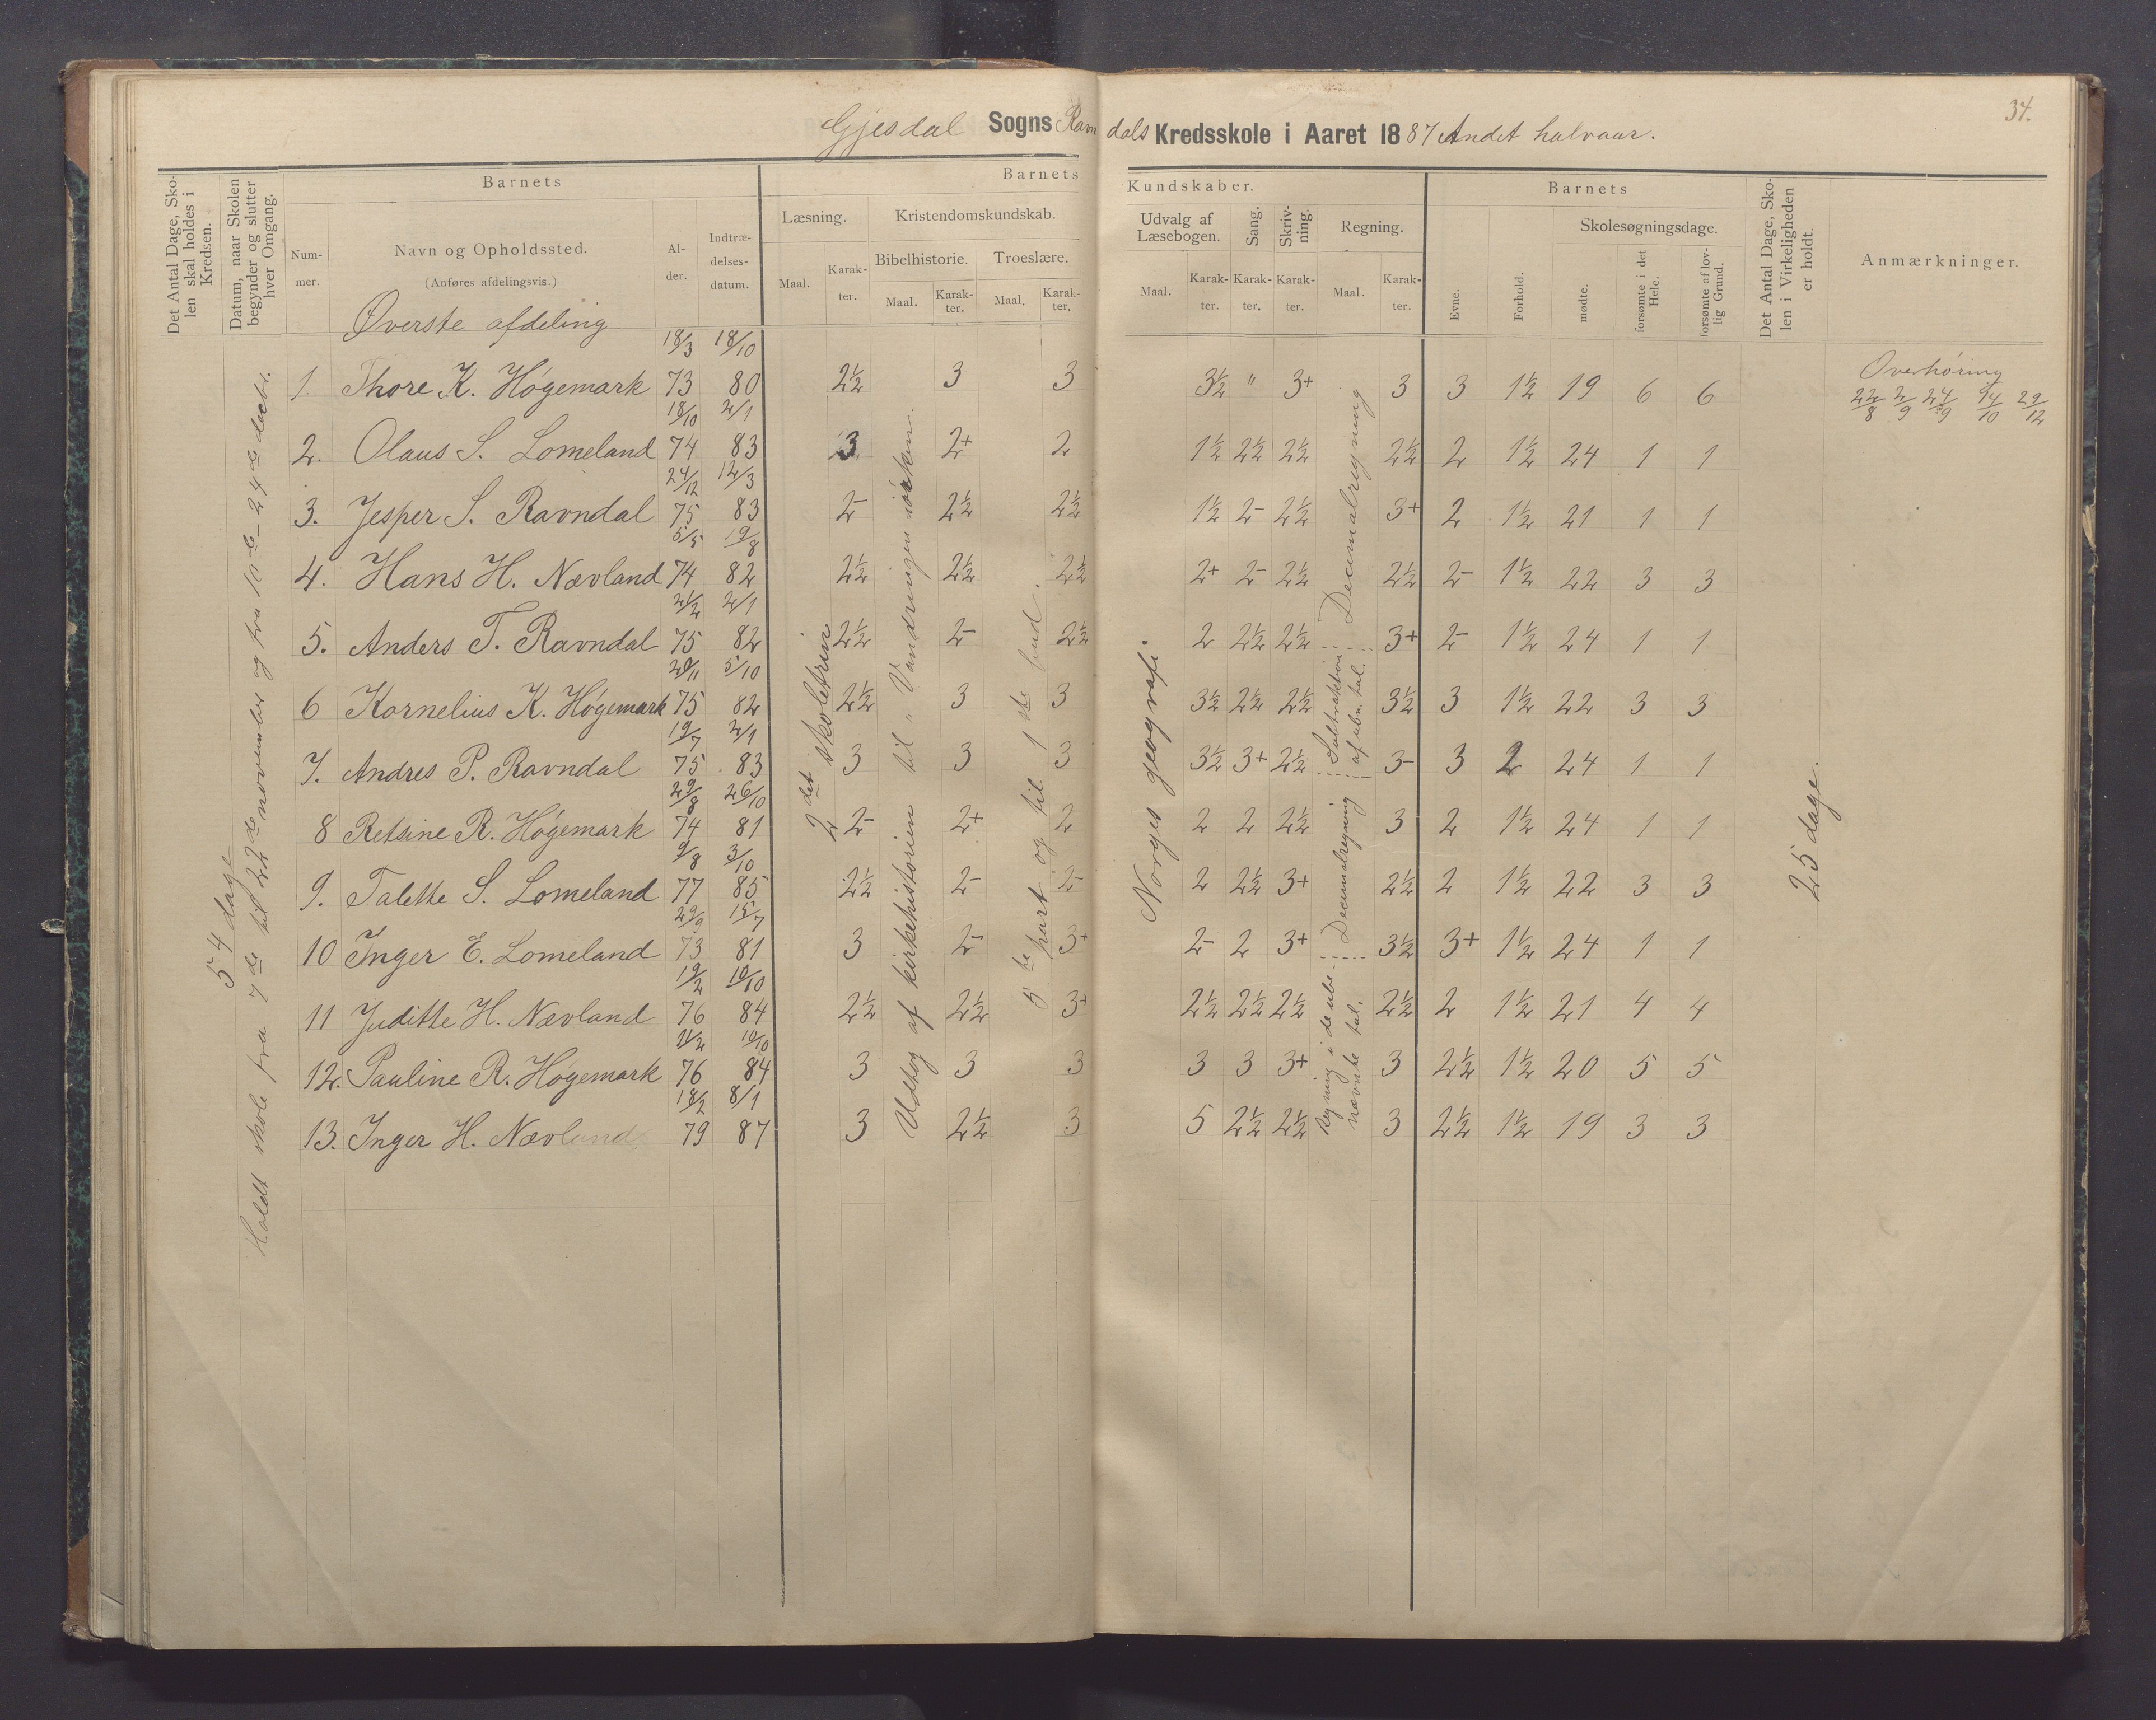 34.
Gjesdal Sogns Ravndals Kredsskole i Aaret 1887 Andet halvaar.
Det Antal Dage, Skolen skal holdes i Kredsen.
Datum, naar Skolen begynder og slutter hver Omgang.
Barnets
Nummer.
Navn og Opholdssted.
(Anføres afdelingsvis.)
Alder.
Indtrædelsesdatum.
Barnets Kundskaber.
Læsning.
Maal. Karakter.
Kristendomskundskab.
Bibelhistorie. Troeslære.
Maal. Karakter. Maal. Karakter.
Udvalg af Læsebogen.
Sang.
Skrivning.
Regning.
Maal. Karakter. Karakter. Karakter. Maal. Karakter.
Barnets
Evne.
Forhold.
Skolesøgningsdage.
mødte.
forsømte i det Hele.
forsømte af lovlig Grund.
Det Antal Dage, Skolen i Virkeligheden er holdt.
Anmærkninger.
Øverste afdeling
54 dage
Holdt skole fra 7de til 22de november og fra 10de - 24de decbr.
2det skoletrin
Udtog af kirkehistorien til "Vandringen i ørken.
5te part og til 1ste bud.
Norges geografi.
Decimalregning
Subtraktion af ubn. tal.
Decimalregning
Regning i de ubenævnte tal.
25 dage.
Overhøring
22/8 2/9 24/9 14/10 29/12
1. Thore K. Høgemark 18/3 73 18/10 80 2½ 3 3 3½ " 3+ 3 3 1½ 19 6 6
2. Olaus S. Lomeland 18/10 74 2/1 83 3 2+ 2 1½ 2½ 2½ 2½ 2 1½ 24 1 1
3. Jesper S. Ravndal 24/12 75 12/3 83 2- 2½ 2½ 1½ 2- 2½ 3+ 2 1½ 21 1 1
4. Hans H. Nævland 5/5 74 19/8 82 2½ 2½ 2½ 2+ 2- 2½ 2½ 2- 1½ 22 3 3
5. Anders T. Ravndal 21/2 75 2/1 82 2½ 2- 2½ 2 2½ 2½ 3+ 2- 1½ 24 1 1
6 Kornelius K. Høgemark 20/11 75 5/10 82 2½ 3 3 3½ 2½ 2½ 3½ 3 1½ 22 3 3
7. Andres P. Ravndal 19/7 75 2/1 83 3 3 3 3½ 3+ 2½ 3- 3 2 24 1 1
8 Retsine R. Høgemark 29/8 74 26/10 81 2- 2+ 2 2 2 2½ 3 2 1½ 24 1 1
9. Talette S. Lomeland 9/8 77 3/10 85 2½ 2- 2- 2 2½ 3+ 2½ 2 1½ 22 3 3
10 Inger E. Lomeland 29/9 73 15/7 81 3 2- 3+ 2- 2 3+ 3½ 3+ 1½ 24 1 1
11 Juditte H. Nævland 19/2 76 10/10 84 2½ 2½ 3+ 2½ 2½ 2½ 2½ 2 1½ 21 4 4
12. Pauline R. Høgemark 76 10/10 84 3 3 3 3 3 3+ 3 2½ 1½ 20 5 5
13. Inger H. Nævland 18/2 79 8/1 87 3 2½ 3 5 2½ 2½ 3 2½ 1½ 19 3 3